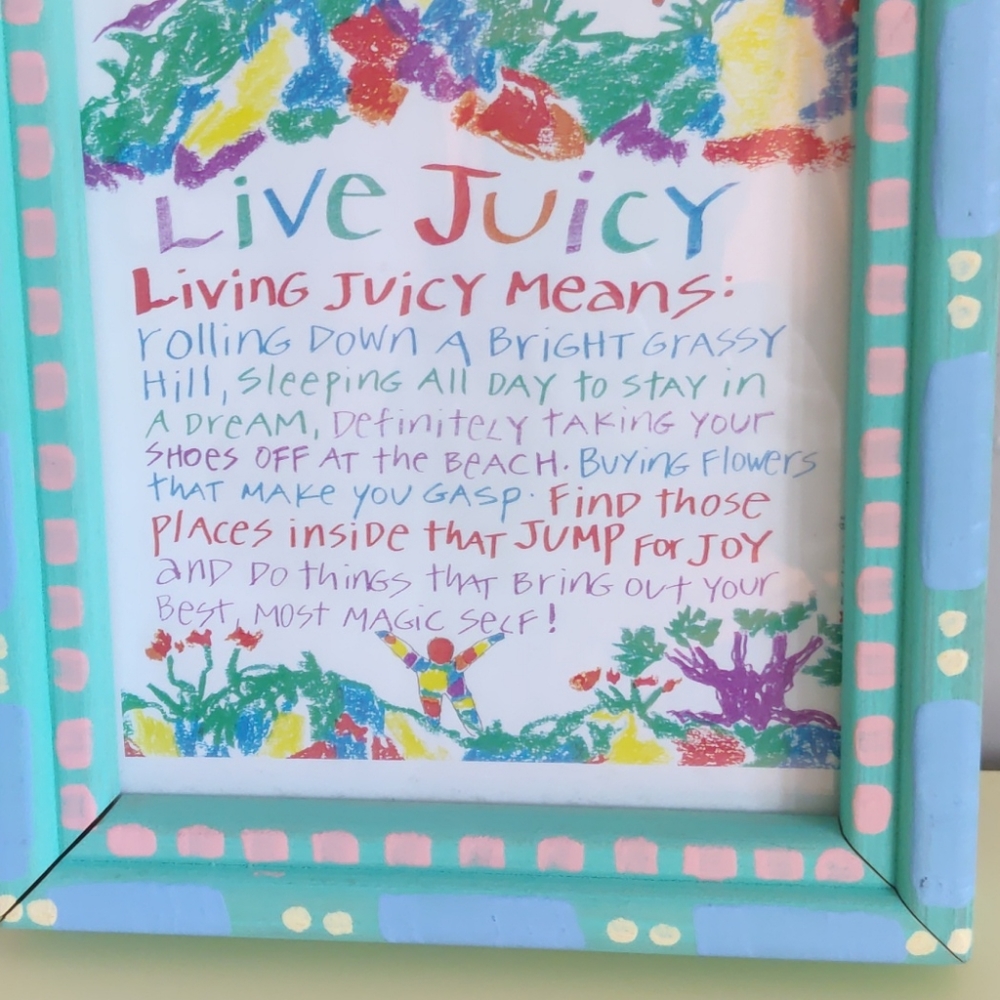 Live Juicy
Living Juicy Means:
rolling DOWN A BriGHT GrASSY
Hill, Sleeping All DAY to STAY in
A DreAM, DefinitELY tAKING your
SHOES OFF AT the BEACH. BUYING Flowers
tHAT MAKe YOU GASP. Find those
PLACES inside tHAT JUMP For JOY
AND DO tHINGS tHAT Bring out your
Best, MOST MAGIC SELF!